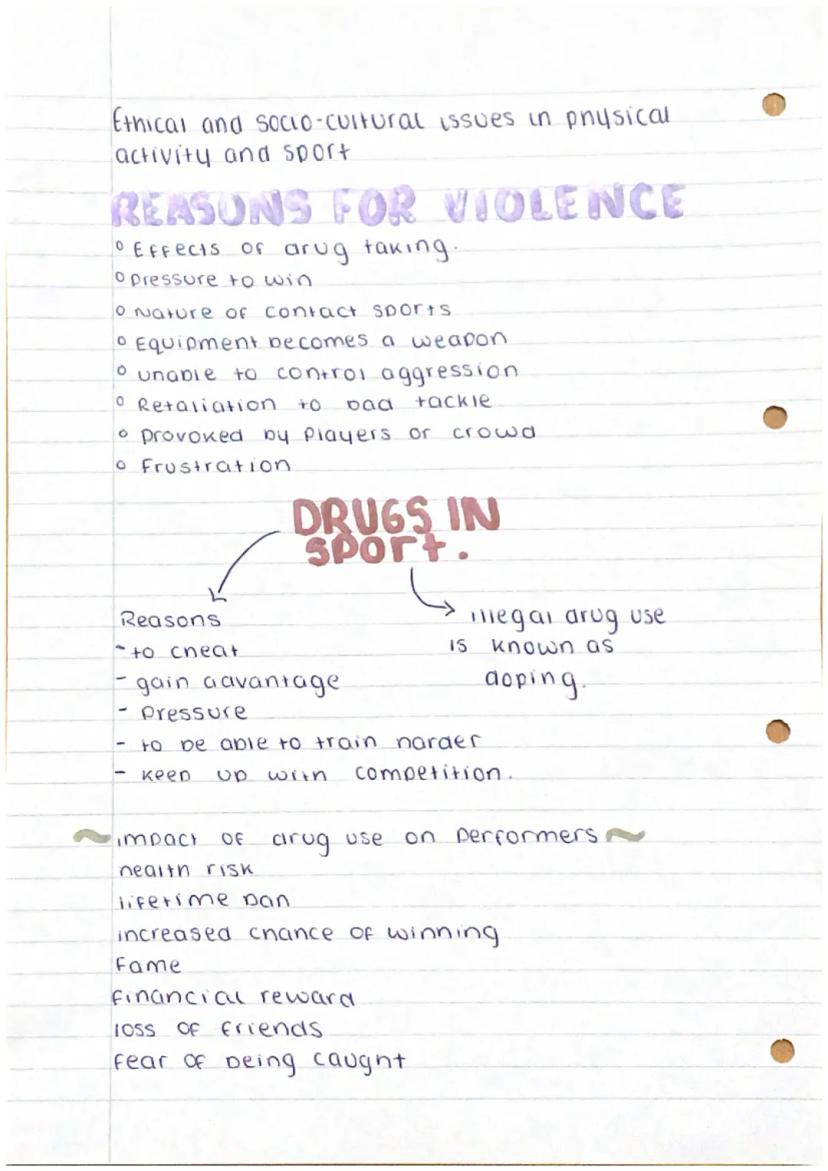 Ethical and socio-cultural issues in physical
activity and sport
REASONS FOR VIOLENCE
° Effects of drug taking.
° Pressure to win
° Nature of contact sports
° Equipment becomes a weapon
° unable to control aggression
° Retaliation to bad tackle
° provoked by players or crowd
° Frustration
DRUGS IN
SPORT.
Reasons
- to cheat
- gain advantage
- Pressure
- to be able to train harder
- keep up with competition.
illegal drug use
is known as
doping.
~ impact of drug use on performers ~
health risk
lifetime ban
increased chance of winning
Fame
financial reward
loss of friends
fear of being caught